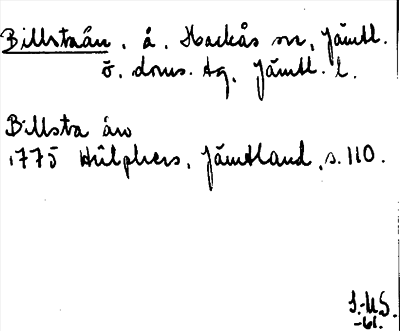 Billstaån. å. Hackås sn, Jämtl.
ö. doms. tg, Jämtl. l.
Billsta åw
1775 Hülphers, Jämtland, s. 110.
S.-U.S.
-61.